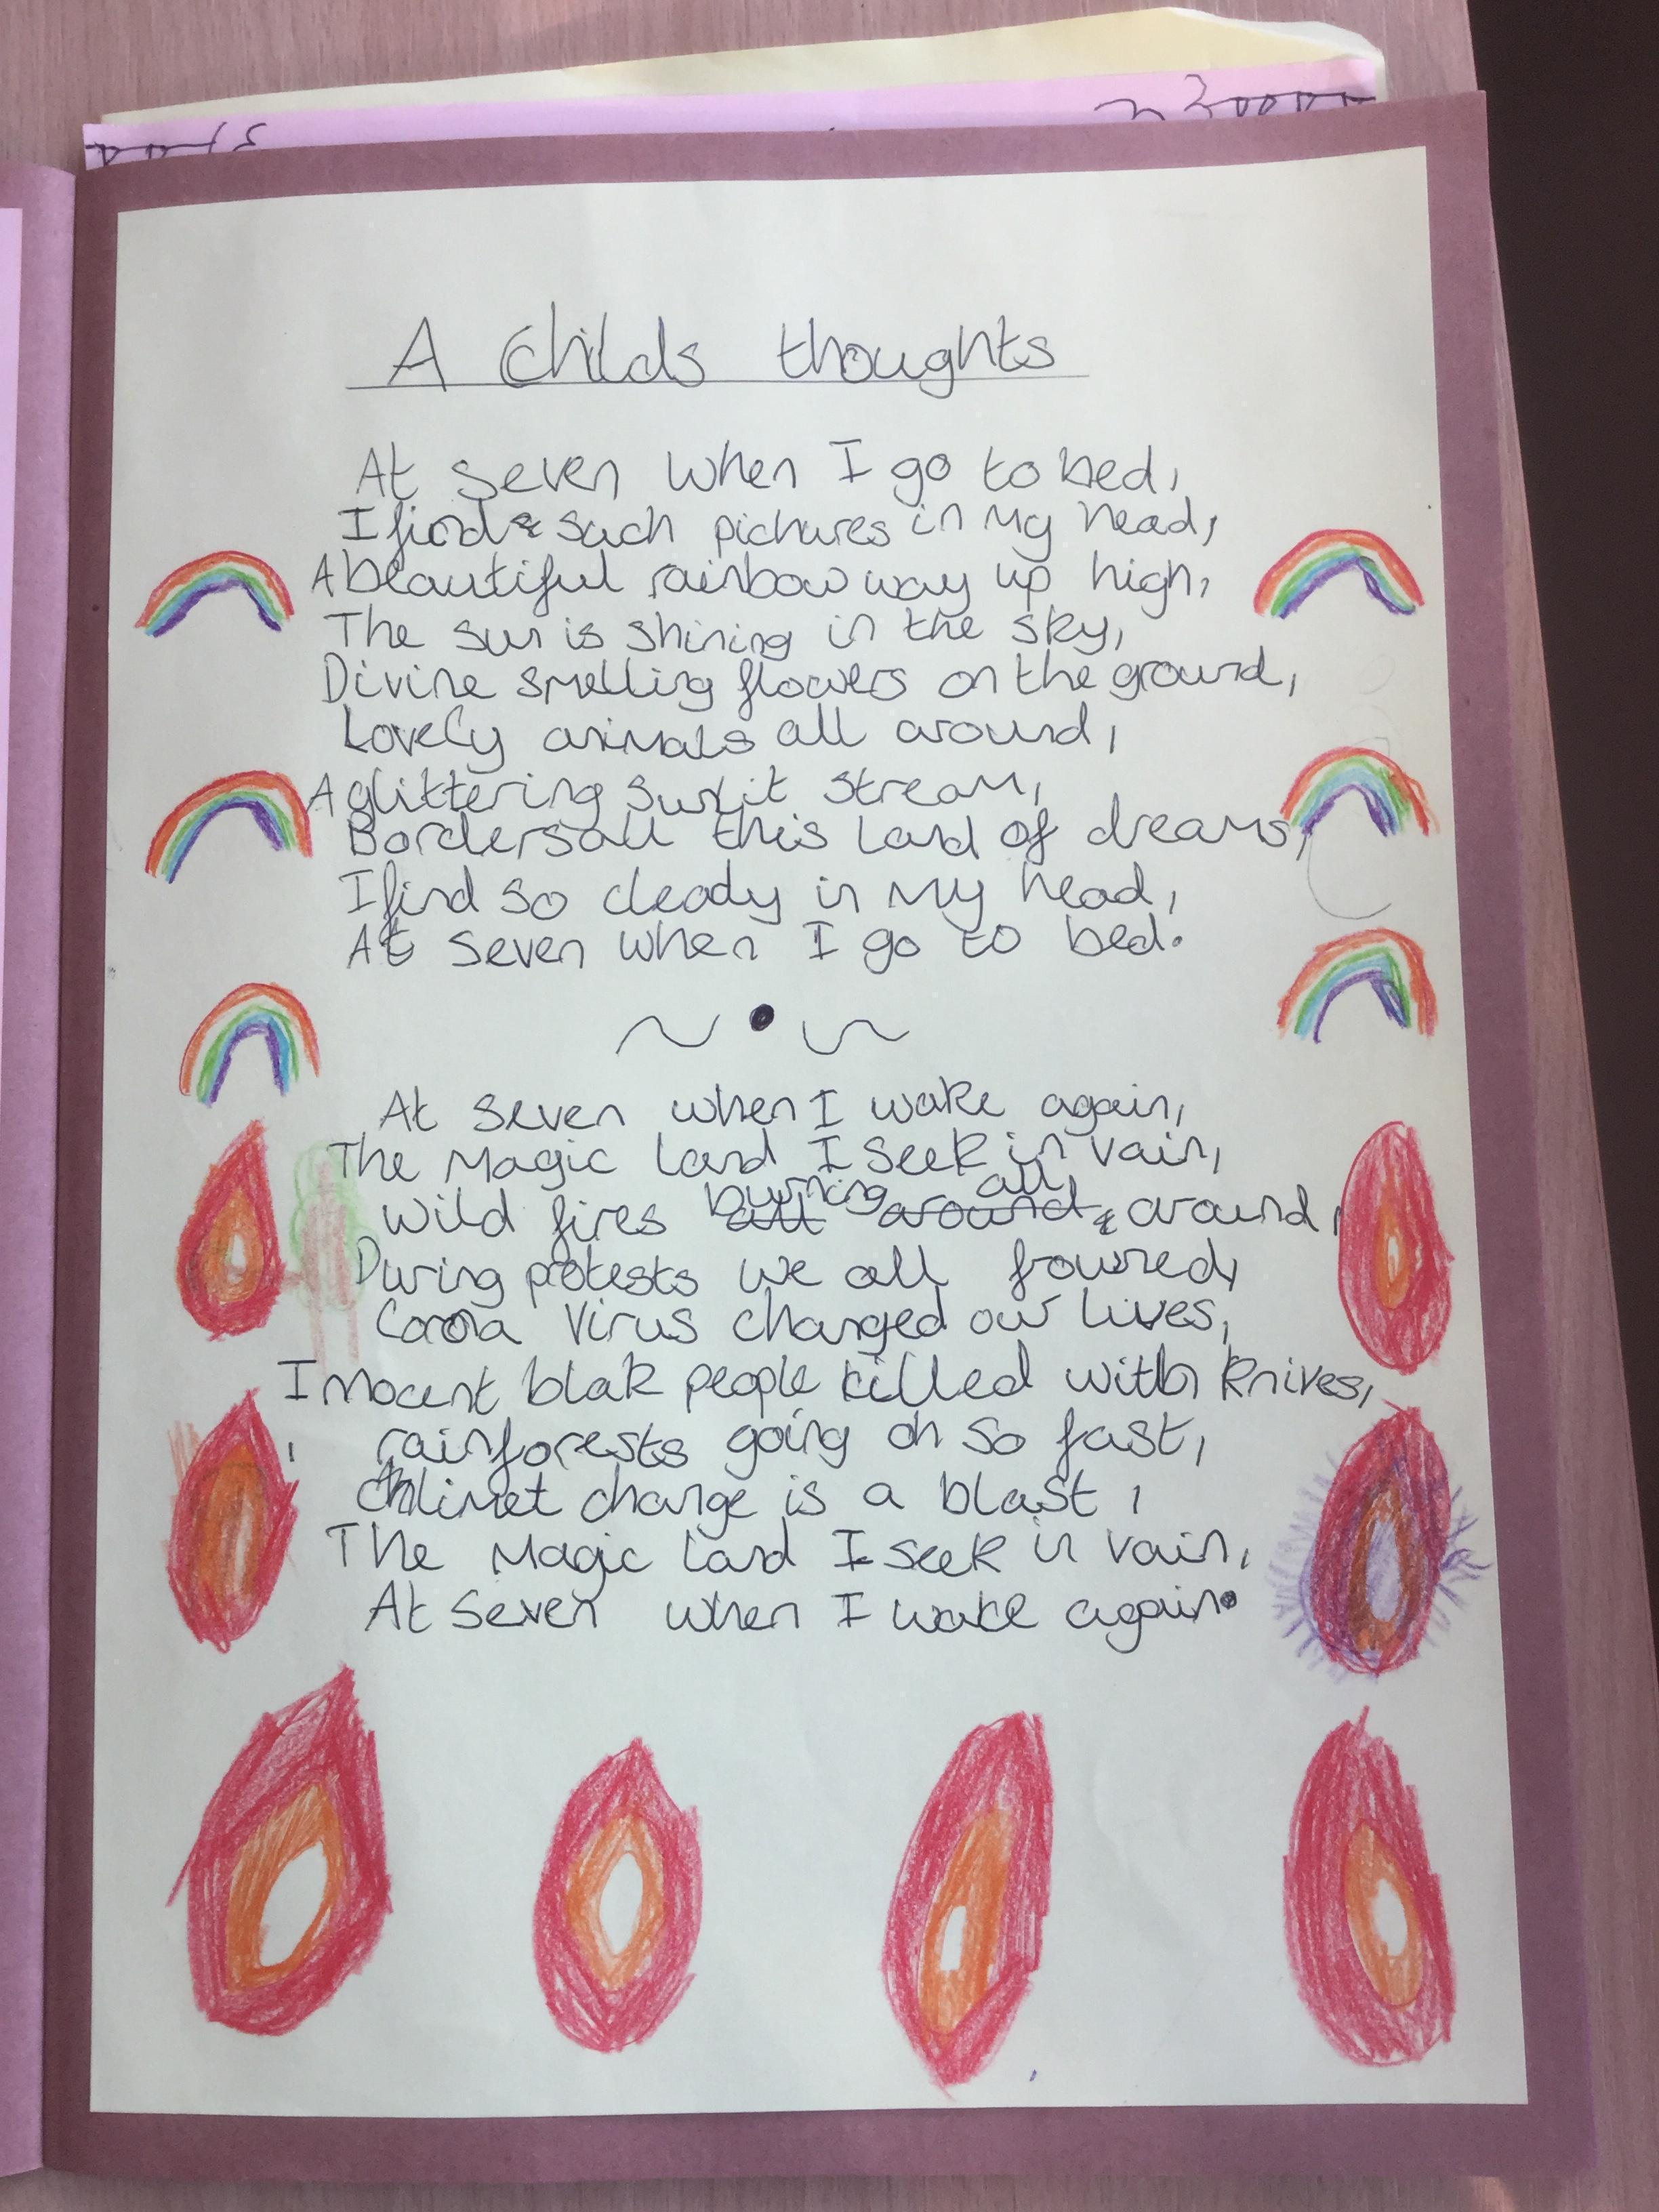 A Childs thoughts
At seven when I go to bed,
I find such pichures in my head,
A beautiful rainbow way up high,
The sun is shining in the sky,
Divine smelling flowers on the ground,
Lovely animals all around,
A glittering sunlit stream,
Borders all this land of dreams,
I find so clearly in my head,
At seven when I go to bed.
At seven when I wake again,
The Magic land I seek in vain,
Wild fires burning all around,
During protests we all frowned,
Corona Virus changed our lives,
Innocent blak people killed with knives,
rainforests going oh so fast,
Climet change is a blast,
The Magic land I seek in vain,
At seven when I wake again.